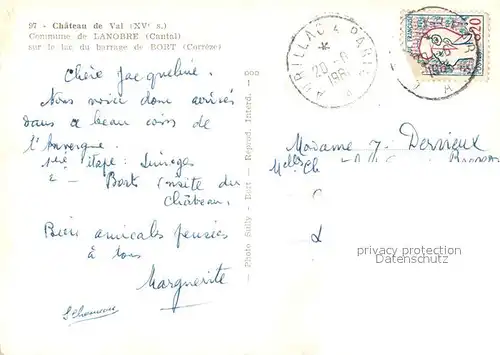 97 - Château de Val (XVe s.)
Commune de LANOBRE (Cantal)
sur le lac du barrage de BORT (Corrèze)
Chère Jacqueline.
Nous voici donc arrivés
dans ce beau coin de
l'Auvergne.
1ère étape: Limoges
2e — Bort (visite du
Château.
Bien amicales pensées
à tous
Marguerite
Photo Suilly - Bort - Reprod. Interd.
AURILLAC A PARIS
20-6
Madame J. Dervieux
Melle Ch
privacy protection
Datenschutz
0,20